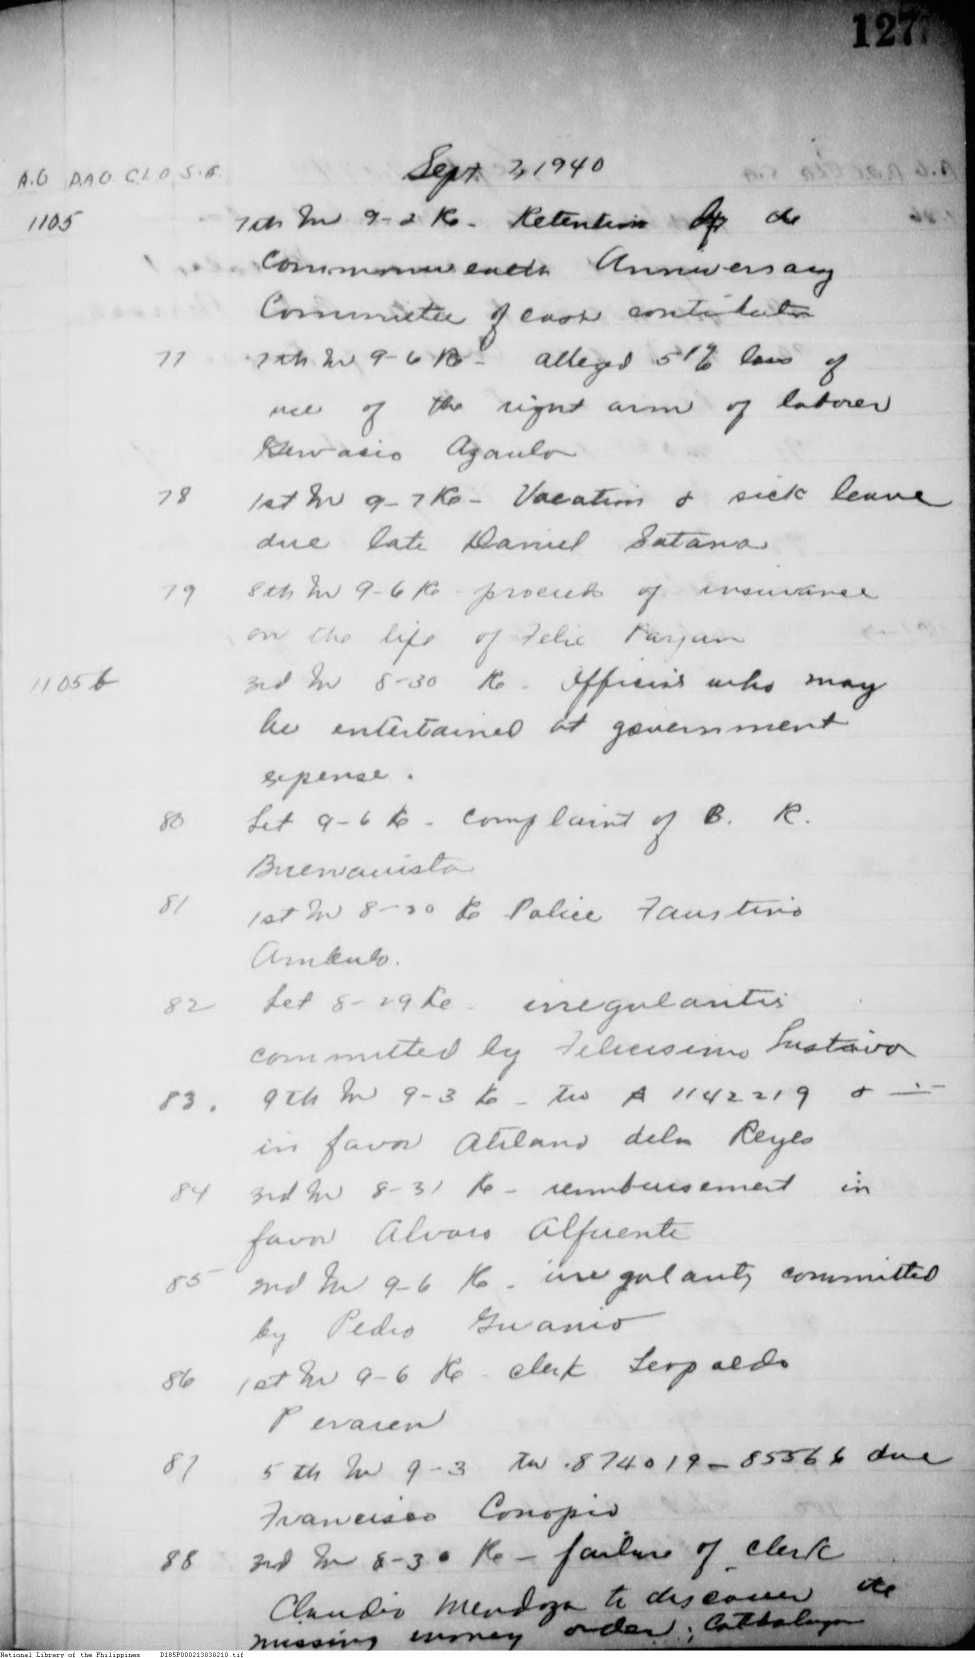 127
Sept 7, 1940
A.G D.A.O. C.L.O. S.A.
1105 7th In 9-2 Re. Retention of the
Commonwealth Anniversary
Committee of cash contribution
77 7th In 9-6 Re - alleged 51% loss of
use of the right arm of laborer
Gervasio
78 1st In 9-7 Re - Vacation & sick leave
due late Daniel Satana
79 8th In 9-6 Re proceeds of insurance
on the life of Felix
1105b 3rd In 8-30 Re - Officials who may
be entertained at government
expense.
80 Let 9-6 Re - Complaint of B. R.
Buenavista
81 1st In 8-30 Re Police Faustino
Ambulo.
82 Let 8-29 Re - irregularities
committed by Felicisimo
83. 9th In 9-3 Re - tw A 1142219 & -"-
in favor Atilano dela Reyes
84 3rd In 8-31 Re - reimbursement in
favor Alvaro Alfuente
85 2nd In 9-6 Re - irregularity committed
by Pedro Guanio
86 1st In 9-6 Re - clerk Leopoldo
87 5th In 9-3 tw .874019 - 85566 due
Francisco Conopio
88 3rd In 8-30 Re - failure of clerk
Claudio Mendoza to discover the
missing money order; Catbalogan
National Library of the Philippines D185P000213838210.tif